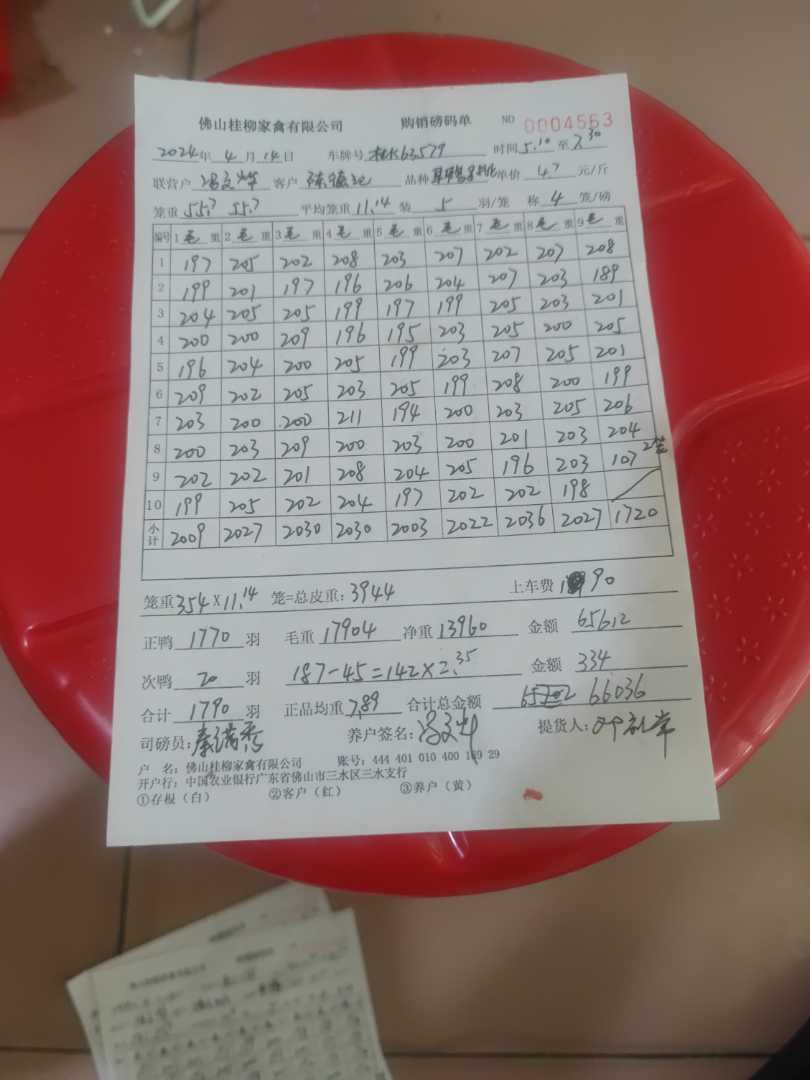 佛山桂柳家禽有限公司 购销磅码单 NO 0004553
2024年 4月 14日 车牌号 63579 时间5.10至7.30
联营户 客户 陈德记 品种 单价 4.7 元/斤
笼重 55.7 55.7 平均笼重 11.14 装 5 羽/笼 称 4 笼/磅
编号 1毛重 2毛重 3毛重 4毛重 5毛重 6毛重 7毛重 8毛重 9毛重
1 197 205 202 208 203 207 202 207 208
2 199 201 197 196 206 204 207 203 189
3 204 205 205 199 197 199 205 203 201
4 200 200 209 196 195 203 205 200 205
5 196 204 200 205 199 203 207 205 201
6 209 202 205 203 205 199 208 200 199
7 203 200 200 211 194 200 203 205 206
8 200 203 209 200 203 200 201 203 204
9 202 202 201 208 204 205 196 203 107 2笼
10 199 205 202 204 197 202 202 198
小计 2009 2027 2030 2030 2003 2022 2036 2027 1720
笼重354X11.14 笼=总皮重：3944 上车费 90
正鸭 1770 羽 毛重 17904 净重 13960 金额 65612
次鸭 20 羽 187-45=142×2.35 金额 334
合计 1790 羽 正品均重 7.89 合计总金额 66036
司磅员：秦满秀 养户签名： 提货人：
户 名：佛山桂柳家禽有限公司 账号：444 401 010 400 169 29
开户行：中国农业银行广东省佛山市三水区三水支行
①存根（白） ②客户（红） ③养户（黄）